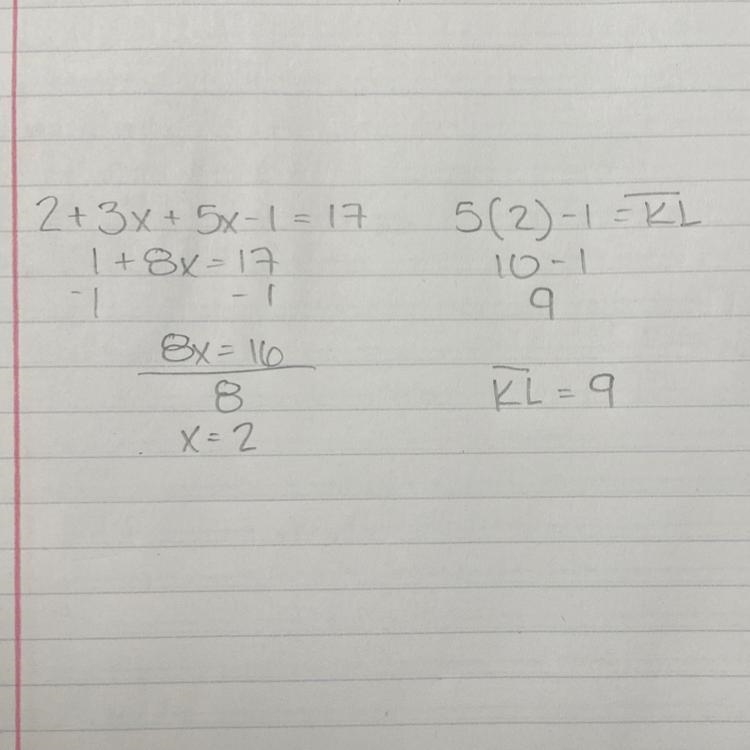 2 + 3x + 5x - 1 = 17
1 + 8x = 17
-1 - 1
8x = 16
8
x = 2
5(2) - 1 = K̅L̅
10 - 1
9
K̅L̅ = 9